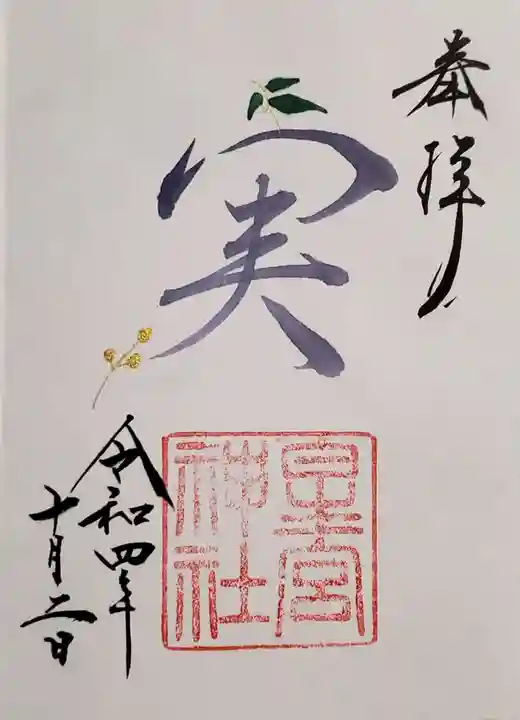 奉拝
実
高宮
神社
令和四年
十月二日